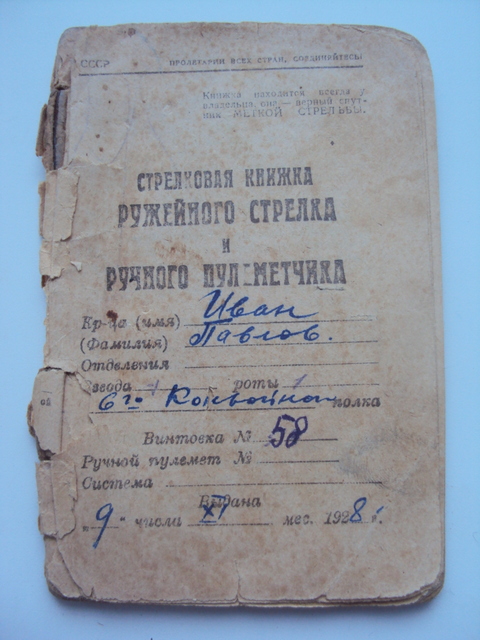 СССР ПРОЛЕТАРИИ ВСЕХ СТРАН, СОЕДИНЯЙТЕСЬ!
Книжка находится всегда у
владельца, она — верный спут-
ник МЕТКОЙ СТРЕЛЬБЫ.
СТРЕЛКОВАЯ КНИЖКА
РУЖЕЙНОГО СТРЕЛКА
И
РУЧНОГО ПУЛЕМЕТЧИКА
Кр-ца (имя) Иван
(Фамилия) Павлов.
Отделения
Взвода 1 роты 1
6го Конвойного полка
Винтовка № 58
Ручной пулемет №
Система
Выдана
"9" числа XI мес. 1928 г.